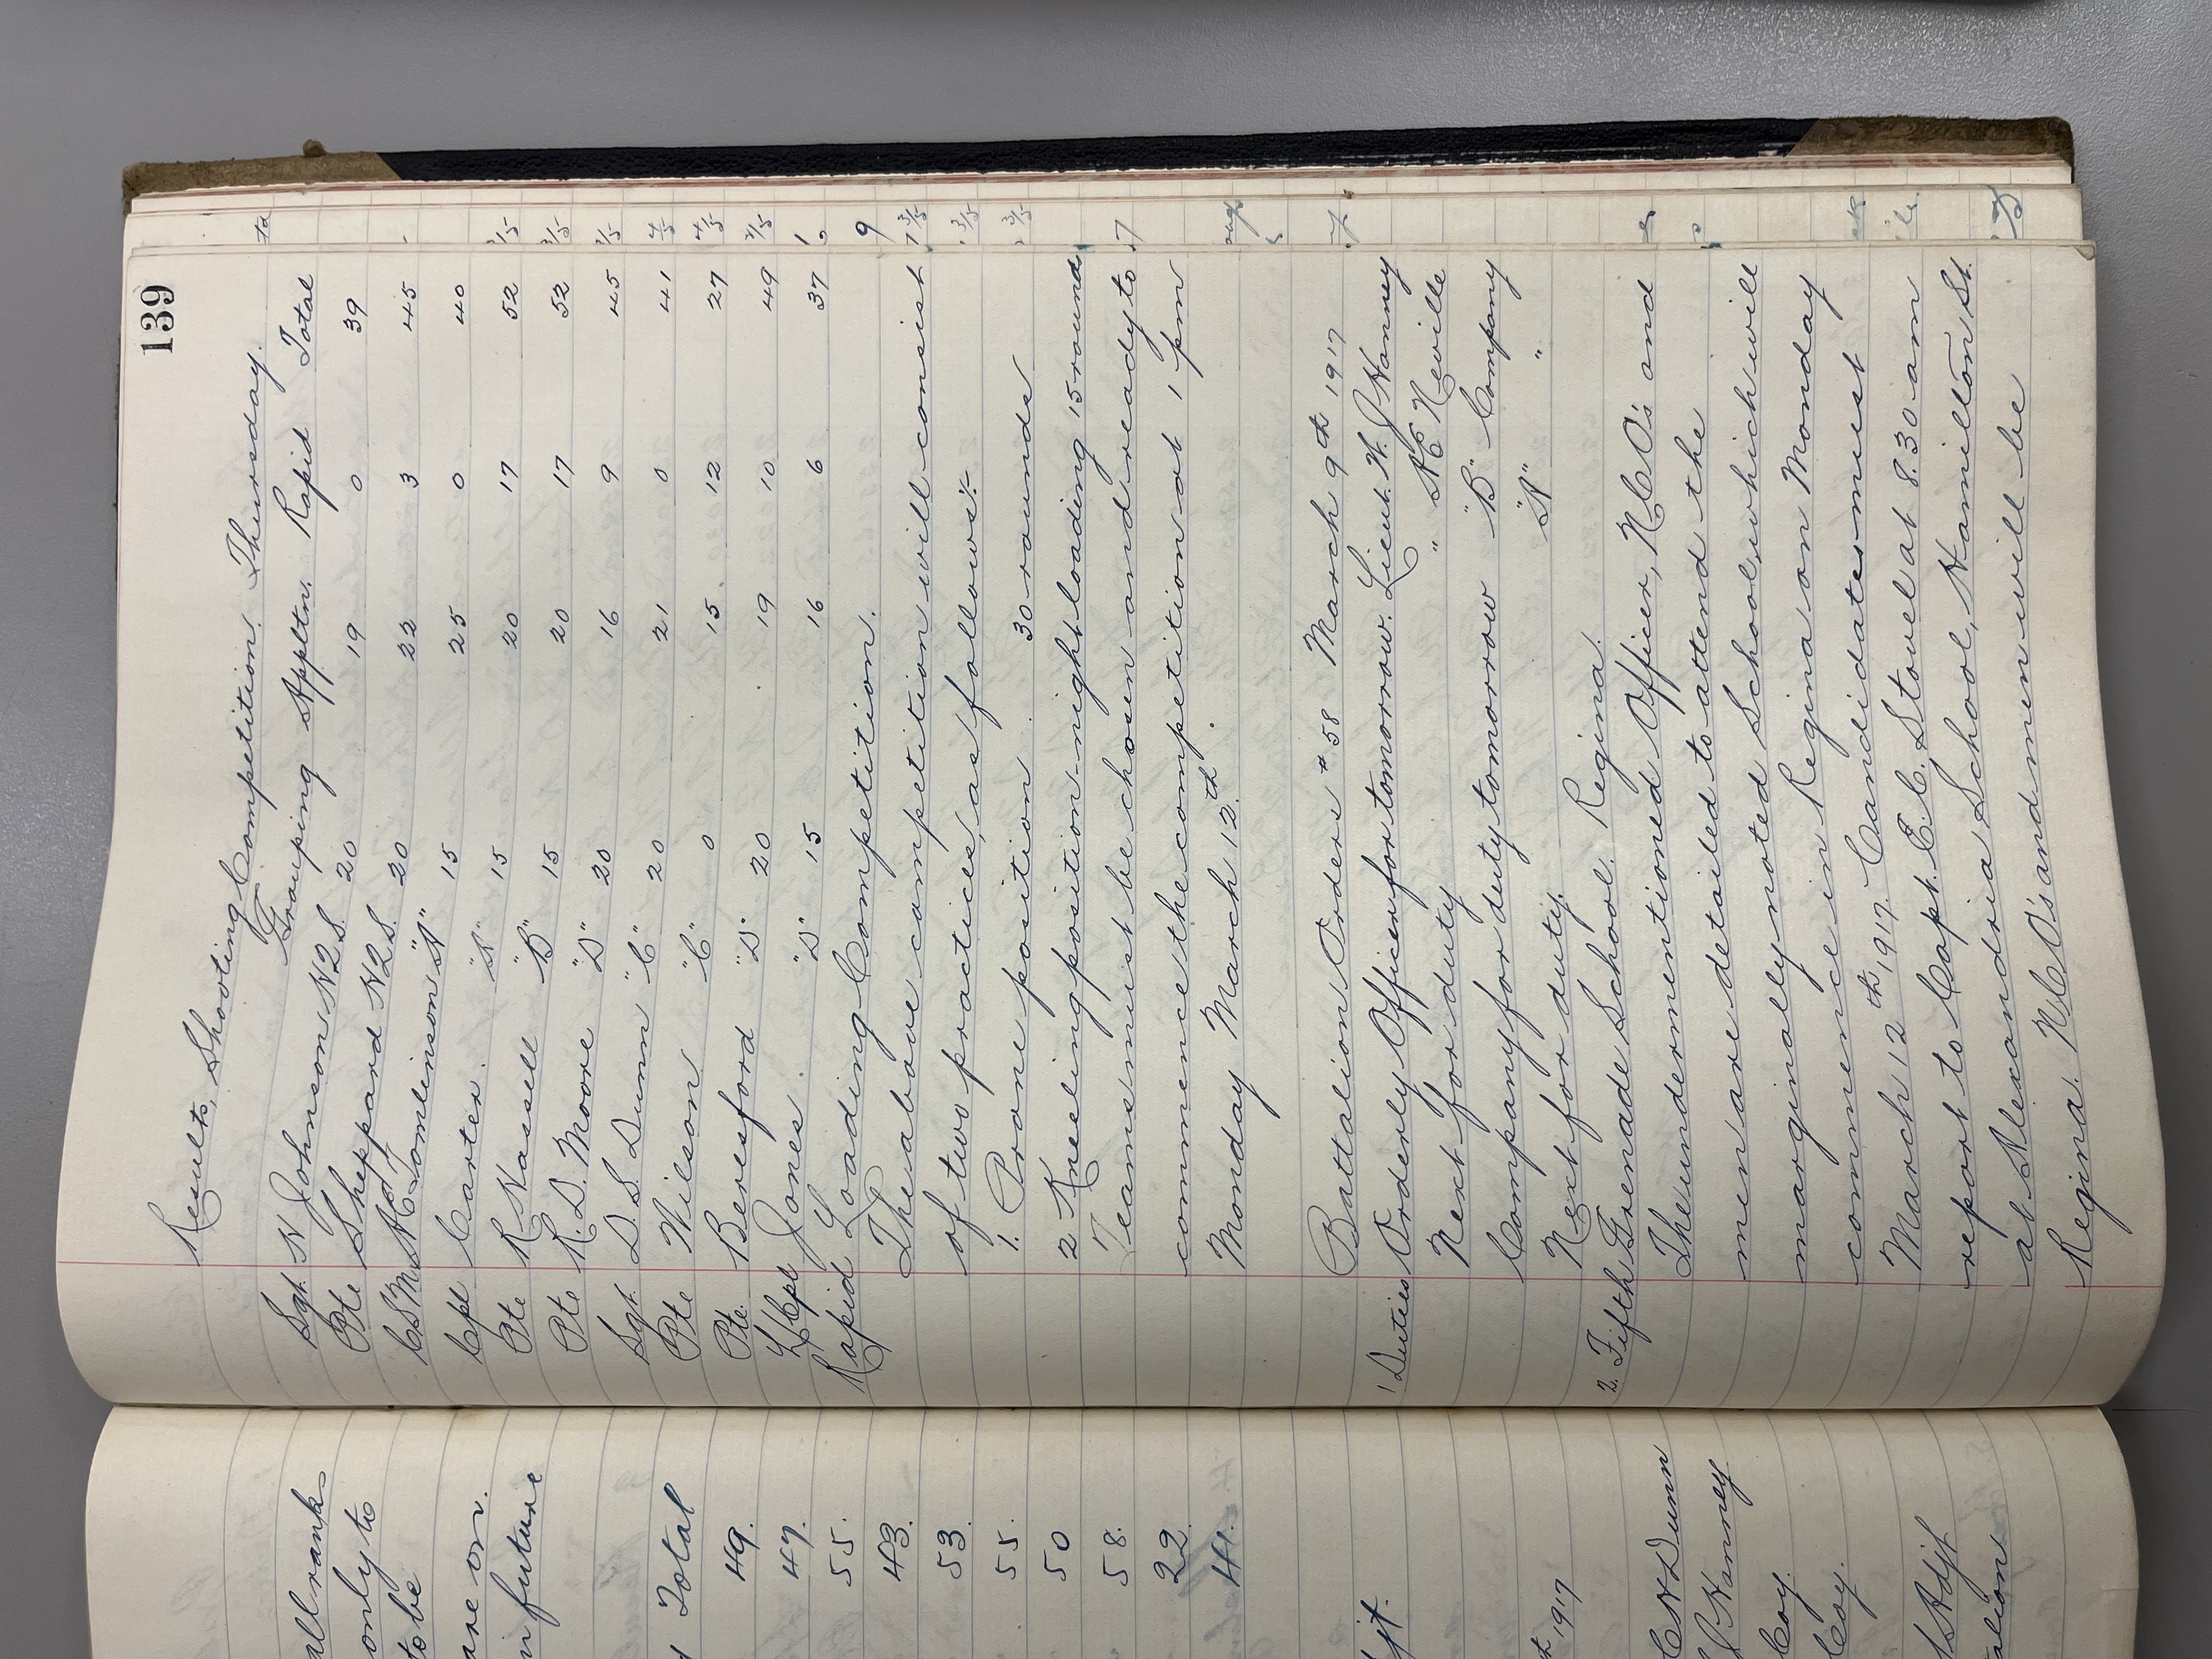 all ranks
only to
to be
are on.
in future
Total
49.
47.
55.
43.
53.
55.
50
58.
22.
41.
1917
C N Dunn
J Hanney
Coy.
Coy.
Adjt
139
Results, Shooting Competition. Thursday.
Grouping Appltn. Rapid Total
Sgt. N Johnson N2S. 20 19 0 39
Pte Sheppard N2S. 20 22 3 45
CSM AC Tomlinson "A" 15 25 0 40
Cpl Carter. "A" 15 20 17 52
Pte R Hassell "B" 15 20 17 52
Pte R. D. Moore "D" 20 16 9 45
Sgt. D. S. Dunn "C" 20 21 0 41
Pte Wilson "C" 0 15 12 27
Pte. Beresford "D" 20 19 10 49
L/Cpl Jones "D" 15 16 6 37
Rapid Loading Competition.
The above competition will consist
of two practices, as follows:-
1. Prone position 30 rounds
2 Kneeling position-night loading 15 rounds
Teams must be chosen and ready to
commence the competition at 1 pm
Monday March 12th.
Battalion Orders #58 March 9th 1917
1 Duties Orderly Officer for tomorrow. Lieut. W. J Hanney
Next for duty " AC Neville
Company for duty tomorrow "B" Company
Next for duty. "A" "
2. Fifth Grenade School. Regina.
The undermentioned Officer, NCO's and
men are detailed to attend the
marginally noted School, which will
commence in Regina on Monday
March 12th, 1917. Candidates must
report to Capt. E.C. Stovel at 8.30 am
at Alexandria School, Hamilton St.
Regina. NCO's and men will be